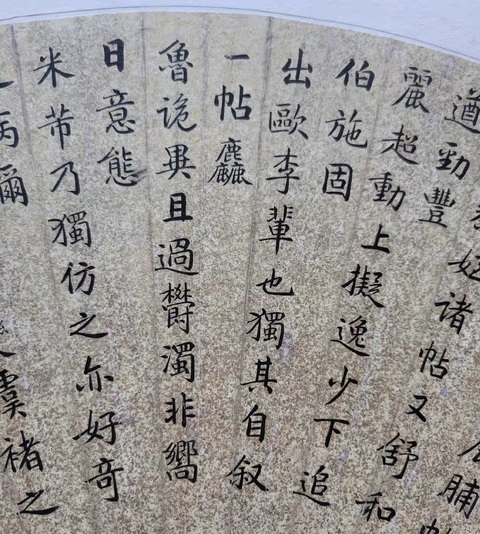 諸帖又舒和
遒勁豐
麗超動上擬逸少下追
伯施固
出歐李輩也獨其自叙
一帖麤
魯詭異且過欝濁非嚮
日意態
米芾乃獨仿之亦好奇
病爾
虞褚之